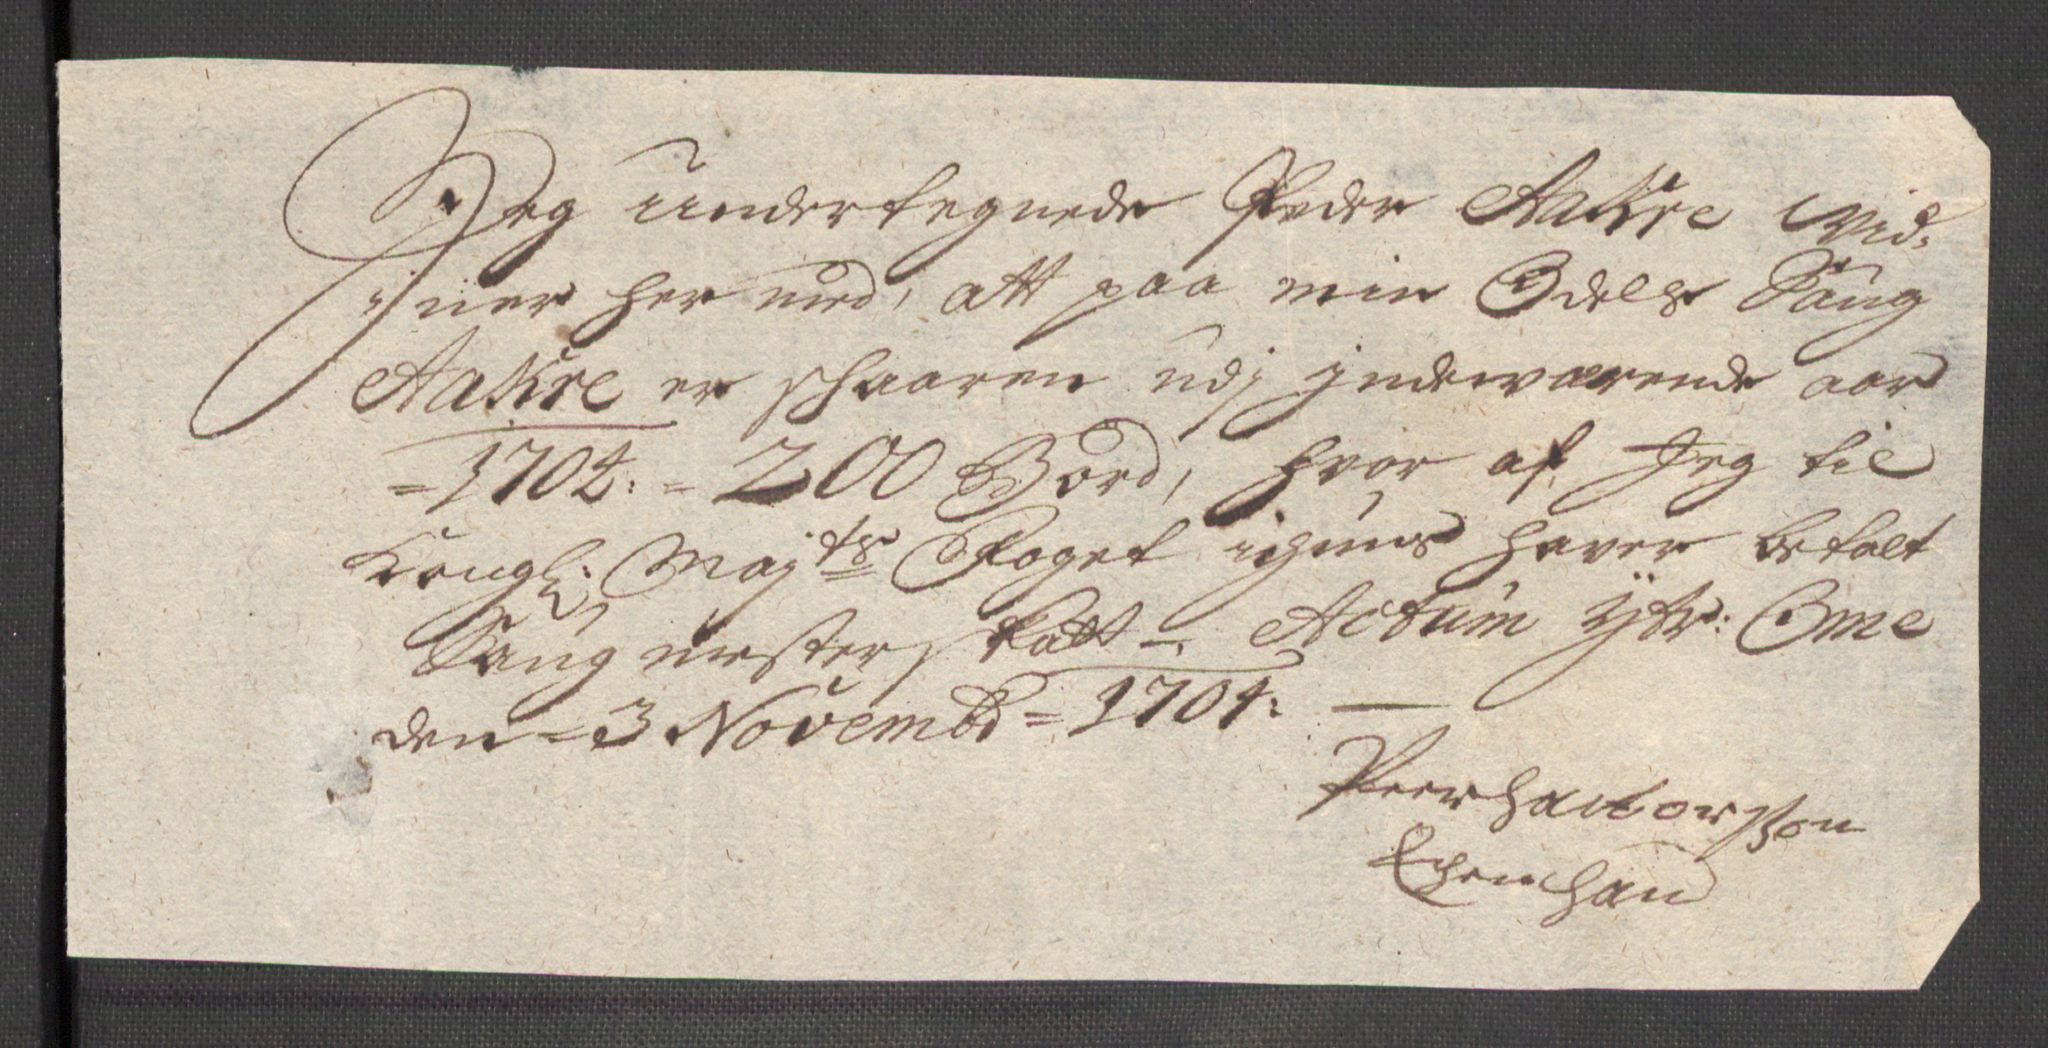 Jeg undertegnede Peder Aakre Vid-
ner her med, att paa min Odels Saug
Aakre er schaaren udj jndewærende aar
=1704: = 200 Bord, hvor af Jeg til
Kongl: Mayts Foget haver betalt
Saug mesterskatt —. Actum Ytr: Ome
den = 3 Novembr = 1704: —
Peer
Egen Haand